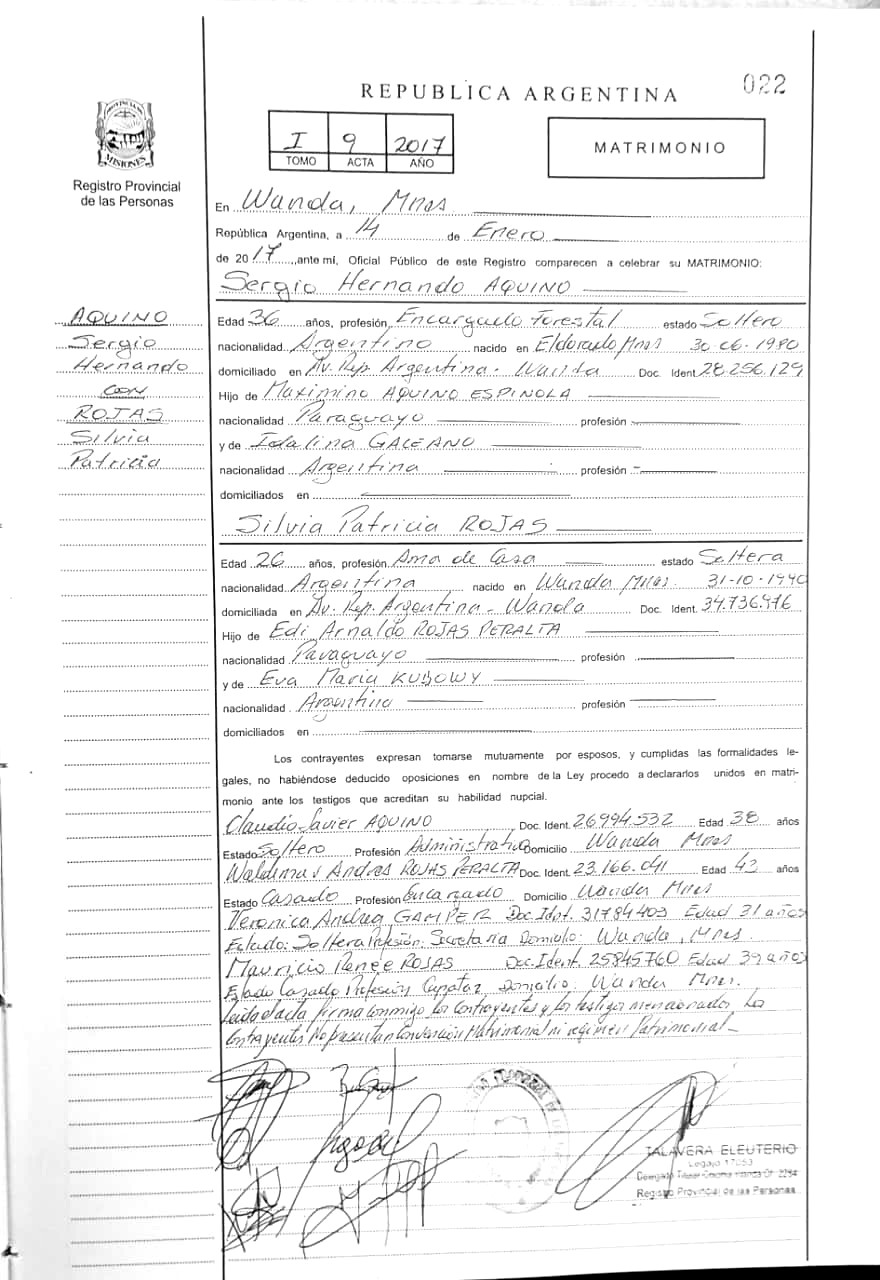 022
REPUBLICA ARGENTINA
PROVINCIA DE MISIONES
I 9 2017
TOMO ACTA AÑO
MATRIMONIO
Registro Provincial
de las Personas
En Wanda, Mnes
República Argentina, a 14 de Enero
de 2017, ante mi, Oficial Público de este Registro comparecen a celebrar su MATRIMONIO:
Sergio Hernando AQUINO
AQUINO
Sergio
Hernando
CON
ROJAS
Silvia
Patricia
Edad 36 años, profesión Encargado Forestal estado Soltero
nacionalidad Argentino nacido en Eldorado Mnes 30-06-1980
domiciliado en Av. Rep. Argentina - Wanda Doc. Ident. 28.256.129
Hijo de Maximino AQUINO ESPINOLA
nacionalidad Paraguayo profesión
y de Idalina GALEANO
nacionalidad Argentina profesión
domiciliados en
Silvia Patricia ROJAS
Edad 26 años, profesión Ama de Casa estado Soltera
nacionalidad Argentina nacido en Wanda Mnes. 31-10-1990
domiciliada en Av. Rep. Argentina - Wanda Doc. Ident. 34.736.976
Hijo de Edi Arnaldo ROJAS PERALTA
nacionalidad Paraguayo profesión
y de Eva Maria KUBOWY
nacionalidad Argentina profesión
domiciliados en
Los contrayentes expresan tomarse mutuamente por esposos, y cumplidas las formalidades le-
gales, no habiéndose deducido oposiciones en nombre de la Ley procedo a declararlos unidos en matri-
monio ante los testigos que acreditan su habilidad nupcial.
Claudio Javier AQUINO Doc. Ident. 26994532 Edad 38 años
Estado Soltero Profesión Administrativo Domicilio Wanda Mnes
Andres ROJAS PERALTA Doc. Ident. 23.166.041 Edad 43 años
Estado Casado Profesión Encargado Domicilio Wanda Mnes
Veronica Andrea GAMPER Doc. Ident. 31784403 Edad 31 años
Estado: Soltera Profesión: Secretaria Domicilio: Wanda, Mnes.
Mauricio Renée ROJAS Doc. Ident. 25845760 Edad 39 años
Estado Casado Profesión Capataz Domicilio: Wanda Mnes.
Leida el acta firma conmigo los contrayentes y los testigos mencionados. Los
contrayentes No presentan Convención Matrimonial ni regimen Patrimonial
TALAVERA ELEUTERIO
Legajo 17053
Delegado Titular Wanda Of. 2254
Registro Provincial de las Personas